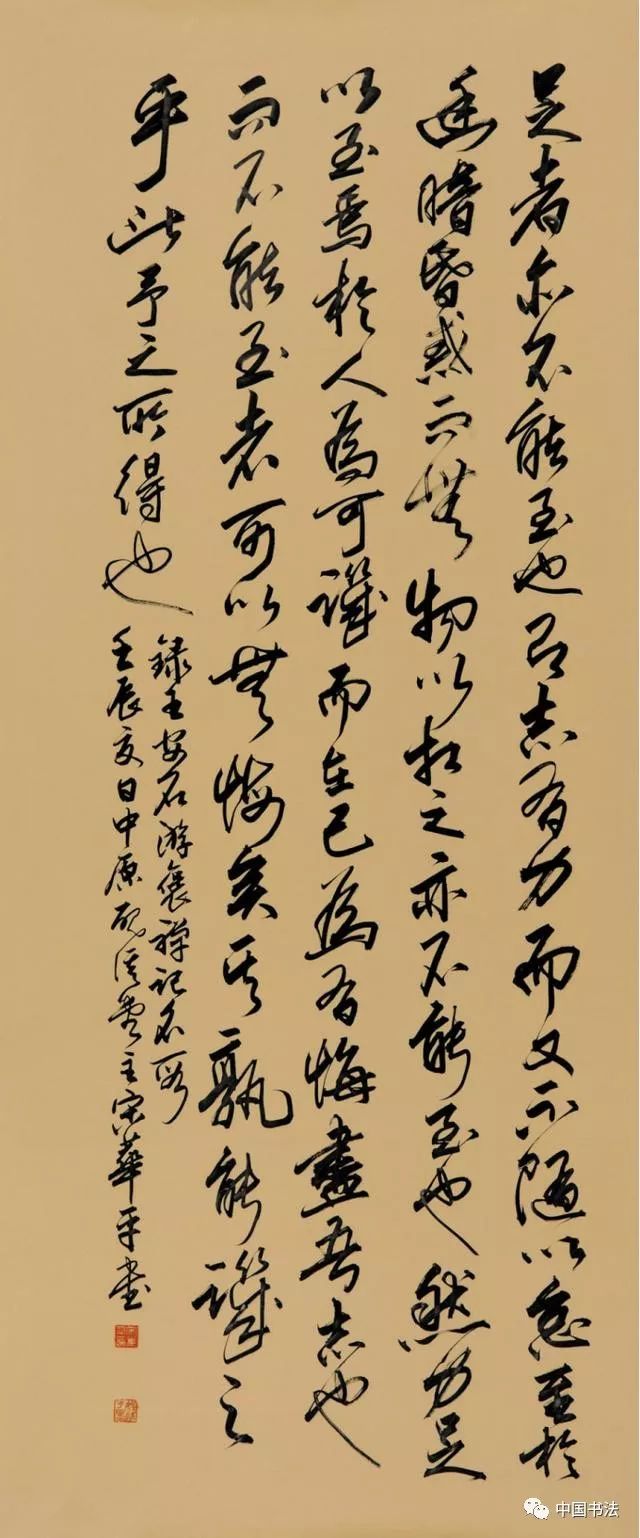 足者亦不能至也有志有力而又不隨以怠至於
幽暗昏惑而無物以相之亦不能至也然力足
以至焉於人為可譏而在己為有悔盡吾志也
而不能至者可以無悔矣其孰能譏之
乎此予之所得也
録王安石游褒禪記名段
壬辰夏日中原主宋華平書
中国书法